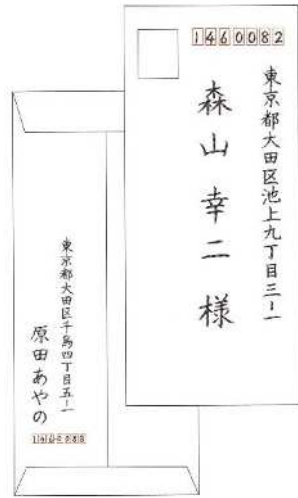 1460082
東京都大田区池上九丁目三ー一
森山幸二様
東京都大田区千鳥四丁目五ー一
原田あやの